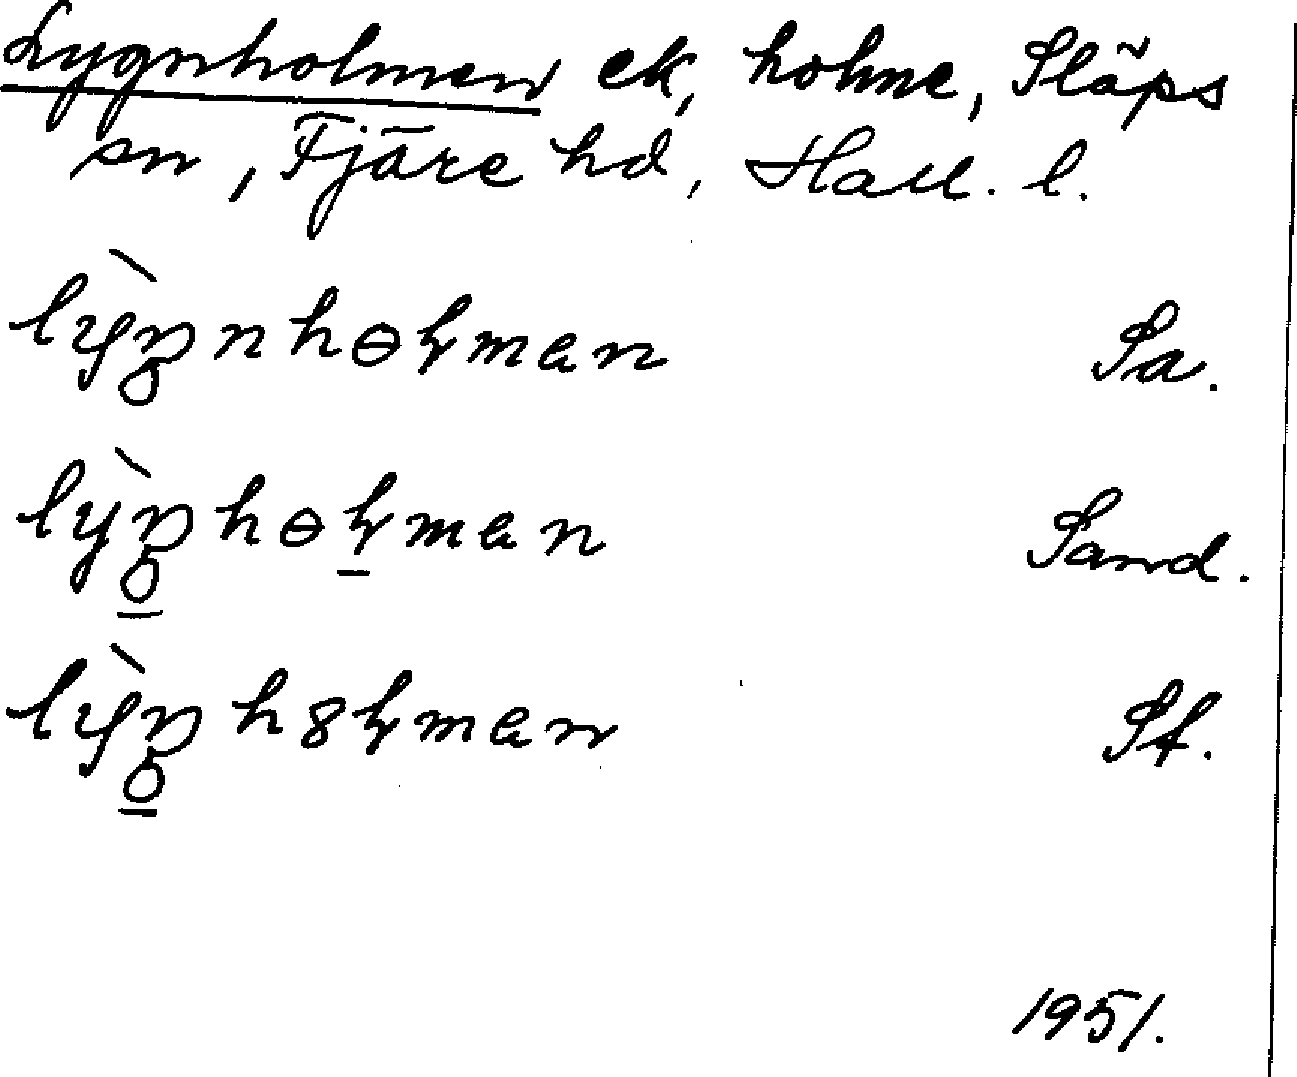 Lygnholmen ek, holme, Släps
sn, Fjäre hd, Hall. l.
lỳŋnhɵɫman Sa.
lỳŋhɵɫman Sand.
lỳŋh8ɫman St.
1951.